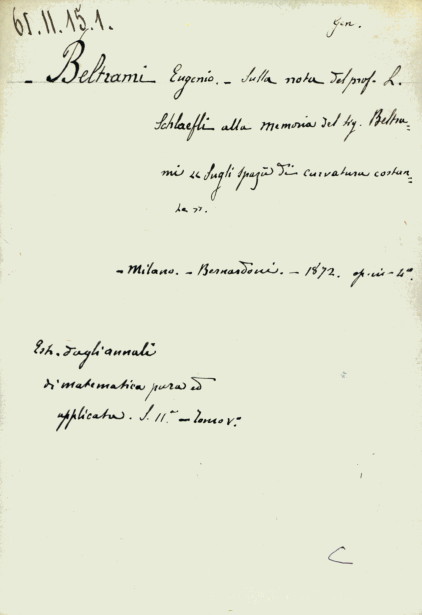 61.II.15.1.
gen.
- Beltrami Eugenio. - Sulla nota del prof. L.
Schlaefli alla memoria del Sig. Beltra=
mi "Sugli spazii di curvatura costan=
te".
- Milano. - Bernardoni. - 1872. op. in - 4°.
Estr. dagli annali
di matematica pura ed
applicata. S. II.ª - Tomo V.°
C